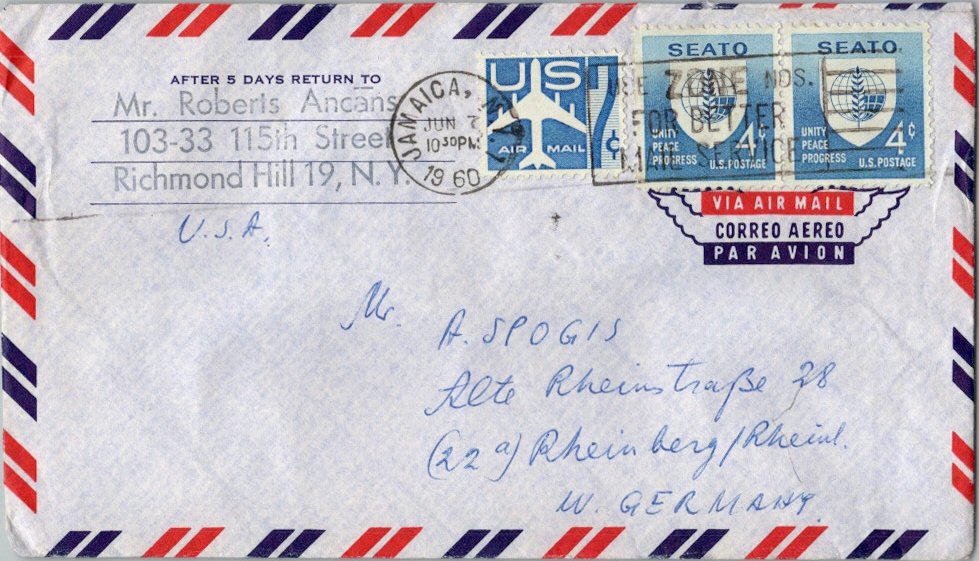 AFTER 5 DAYS RETURN TO
Mr. Roberts Ancāns
103-33 115th Street
Richmond Hill 19, N.Y.
U.S.A.
JAMAICA, N.Y.
JUN 7
10 30 PM
1960
US
7¢
AIR MAIL
USE ZONE NOS.
FOR BETTER
MAIL SERVICE
SEATO
UNITY
PEACE
PROGRESS
4¢
U.S. POSTAGE
SEATO
UNITY
PEACE
PROGRESS
4¢
U.S. POSTAGE
VIA AIR MAIL
CORREO AEREO
PAR AVION
Mr. A. SPOGIS
Alte Rheinstraße 28
(22a) Rheinberg/Rheinl.
W. GERMANY.